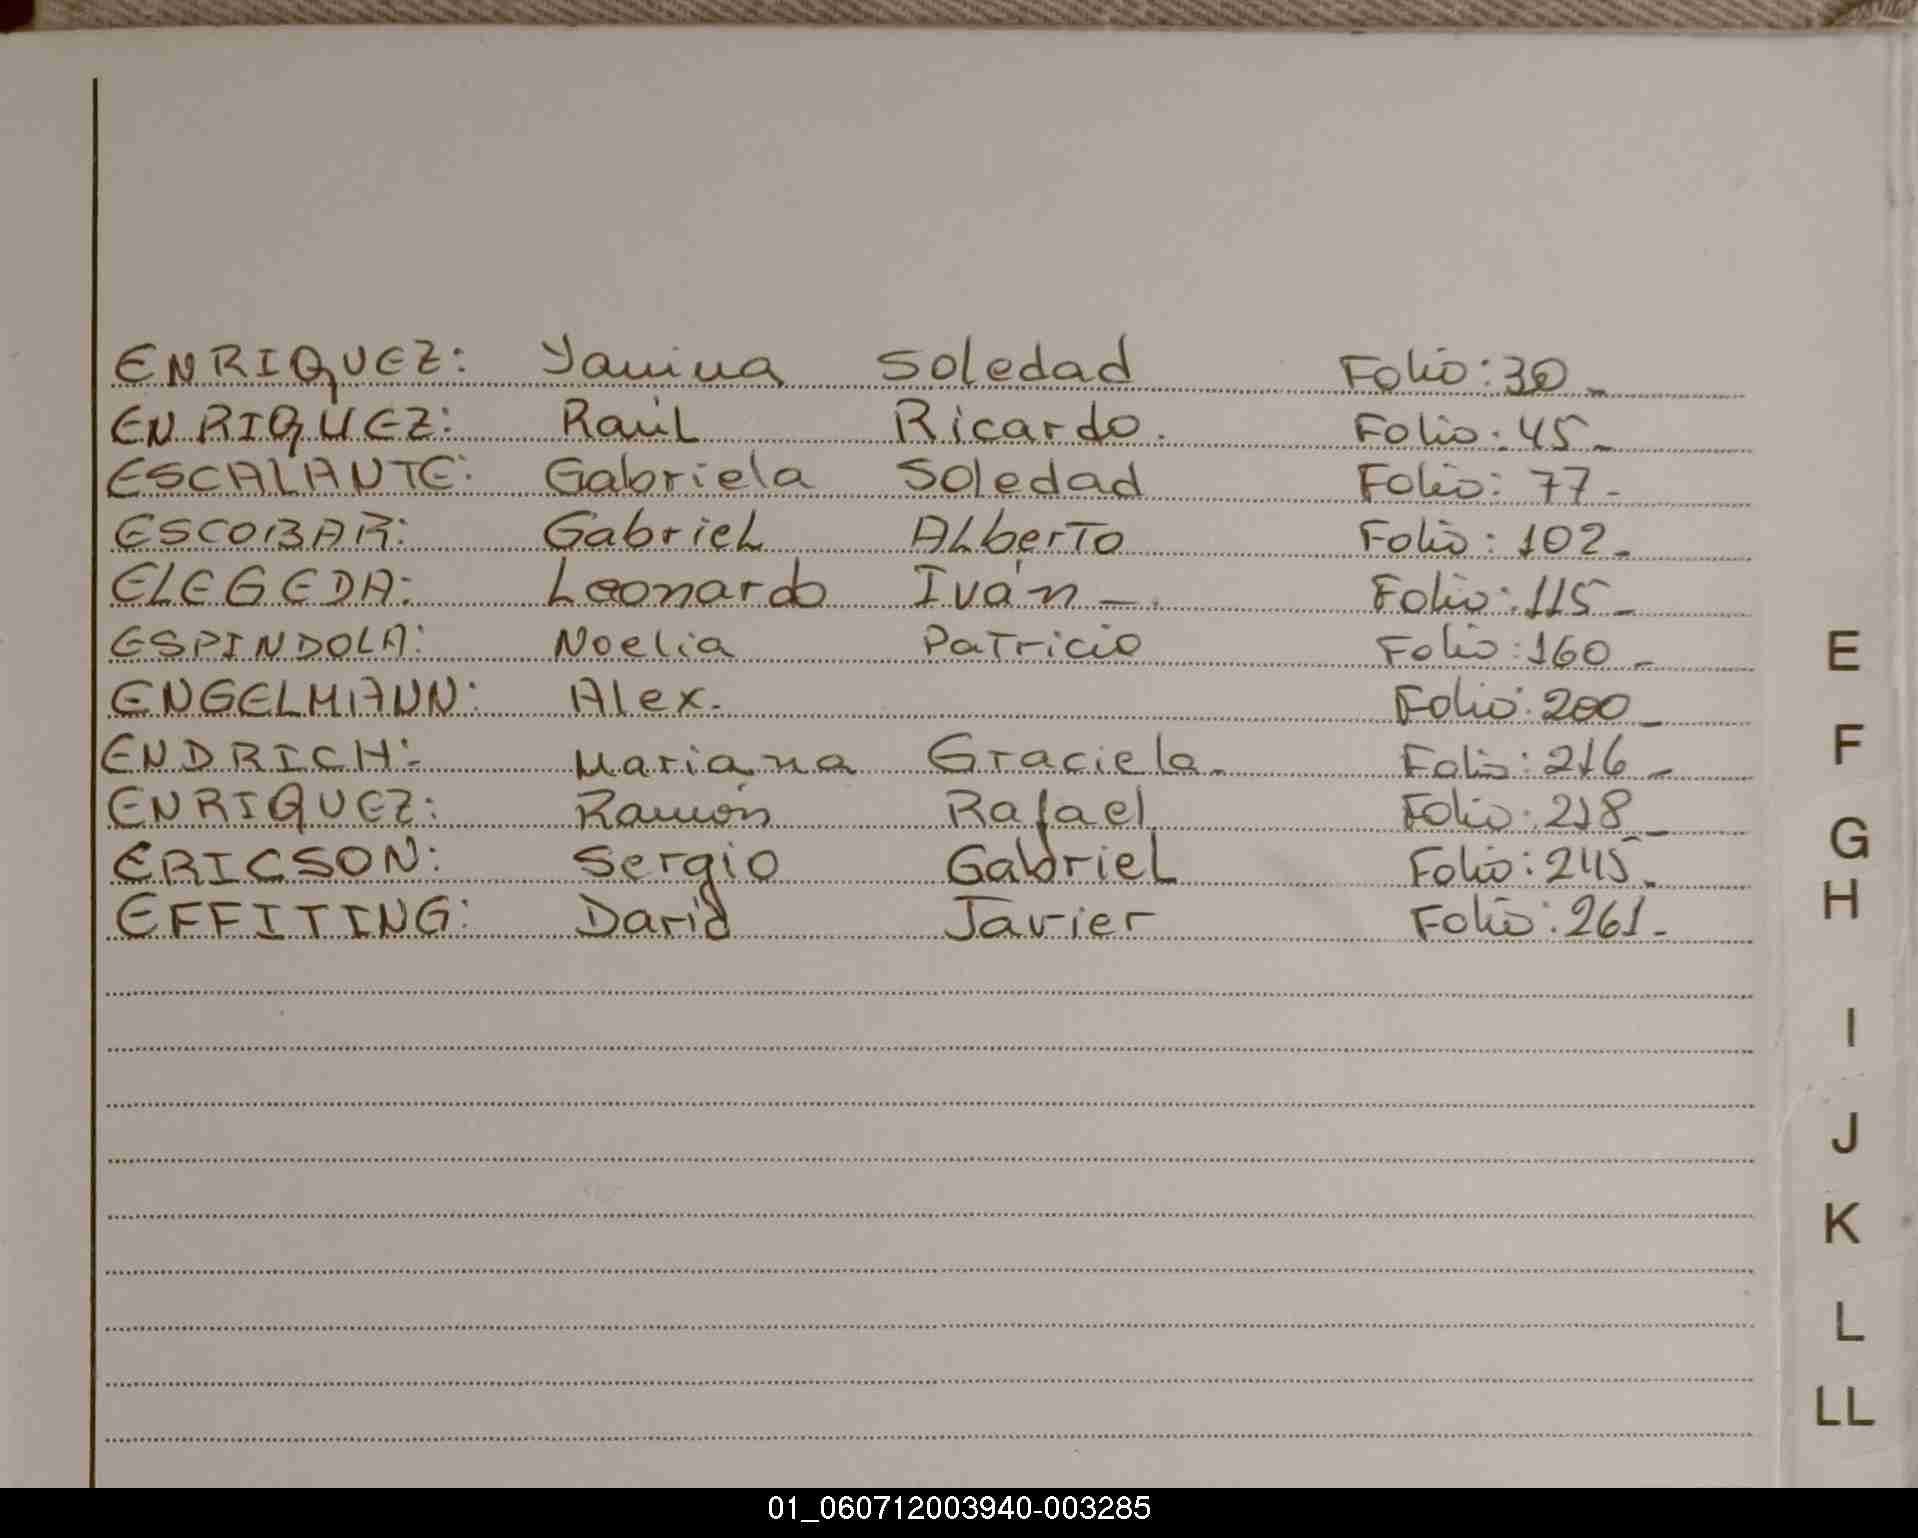 ENRIQUEZ: Yanina Soledad Folio: 30-
ENRIQUEZ: Raúl Ricardo. Folio: 45-
ESCALANTE: Gabriela Soledad Folio: 77-
ESCOBAR: Gabriel Alberto Folio: 102-
ELEGEDA: Leonardo Iván - Folio: 115-
ESPINDOLA: Noelia Patricio Folio: 160-
ENGELMANN: Alex. Folio: 200-
ENDRICH: Mariana Graciela. Folio: 216-
ENRIQUEZ: Ramón Rafael Folio: 218-
ERICSON: Sergio Gabriel Folio: 245-
EFFITING: David Javier Folio: 261-
E
F
G
H
I
J
K
L
LL
01_060712003940-003285